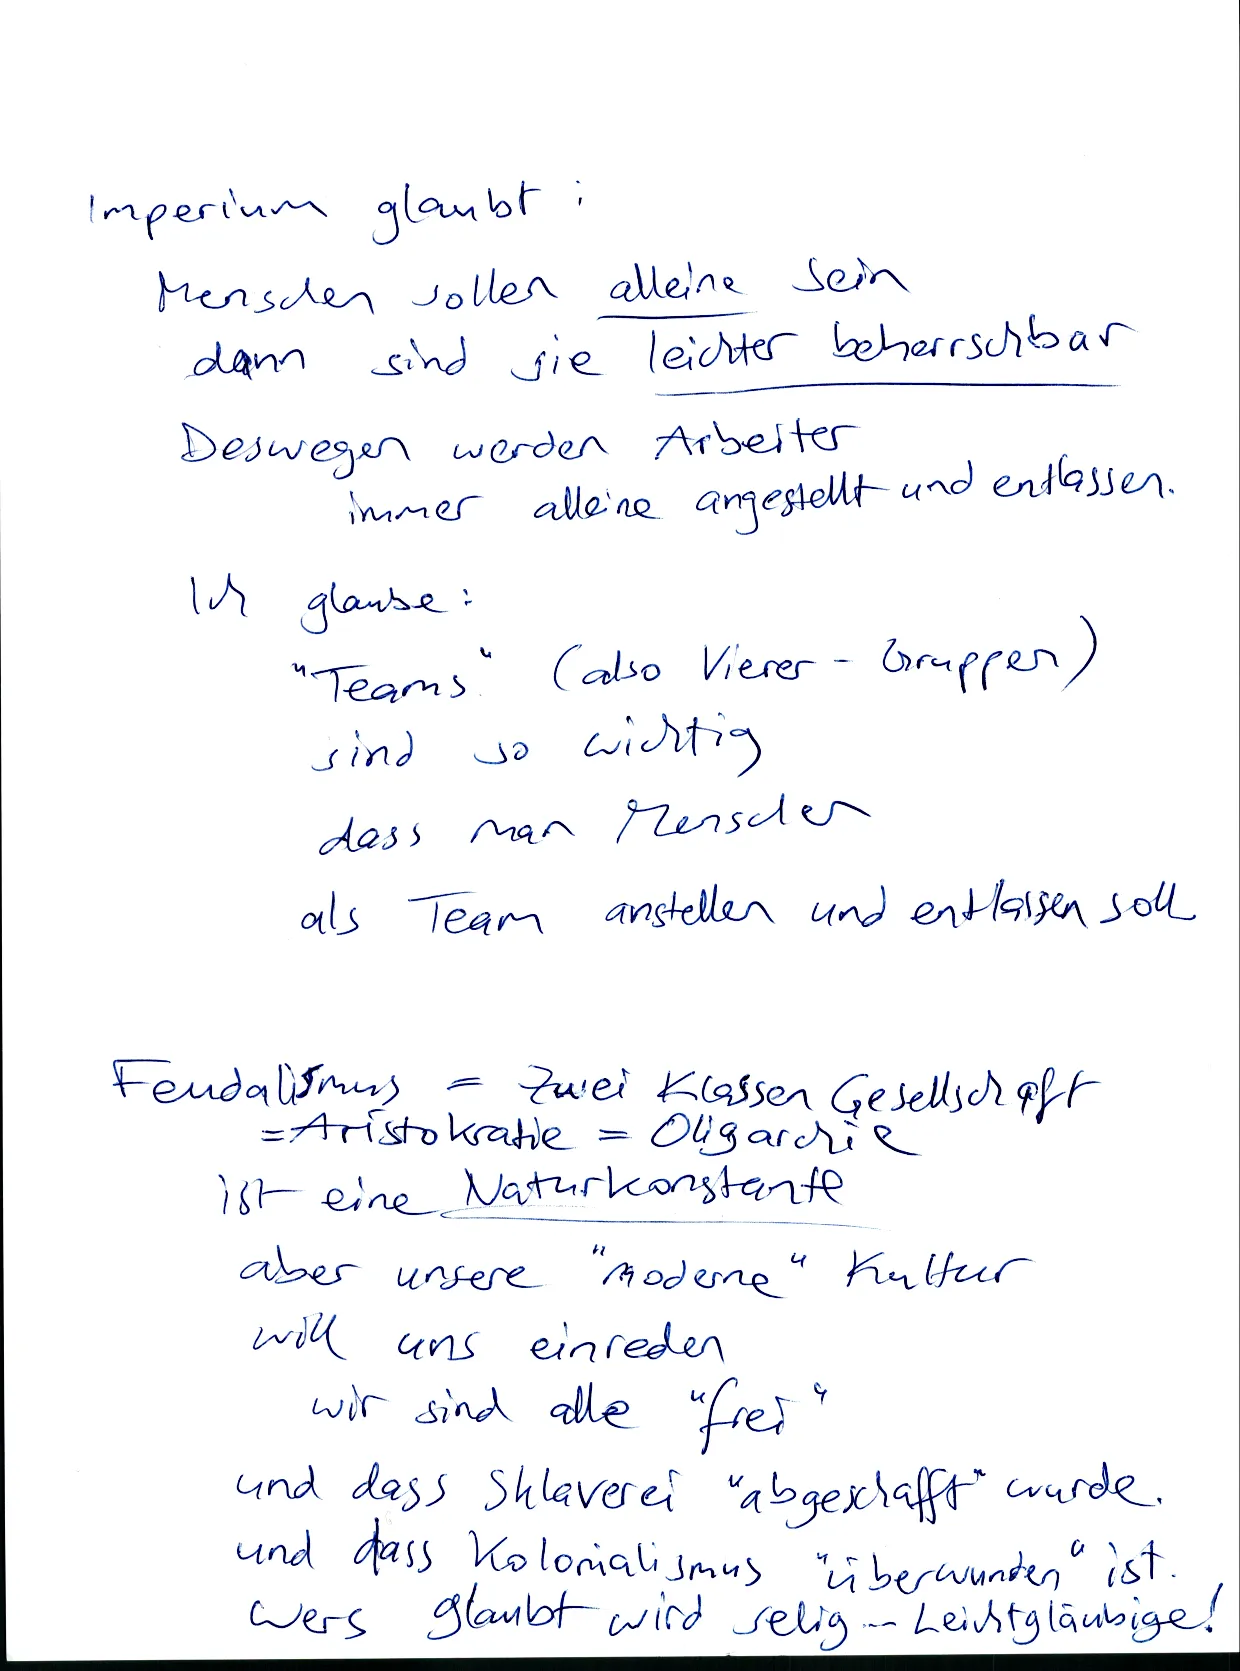 Imperium glaubt:
Menschen sollen alleine sein
dann sind sie leichter beherrschbar
Deswegen werden Arbeiter
immer alleine angestellt und entlassen.
Ich glaube:
"Teams" (also Vierer-Gruppen)
sind so wichtig
dass man Menschen
als Team anstellen und entlassen soll
Feudalismus = Zwei Klassen Gesellschaft
= Aristokratie = Oligarchie
ist eine Naturkonstante
aber unsere "moderne" Kultur
will uns einreden
wir sind alle "frei"
und dass Sklaverei "abgeschafft" wurde.
und dass Kolonialismus "überwunden" ist.
Wers glaubt wird selig -- Leichtgläubige!